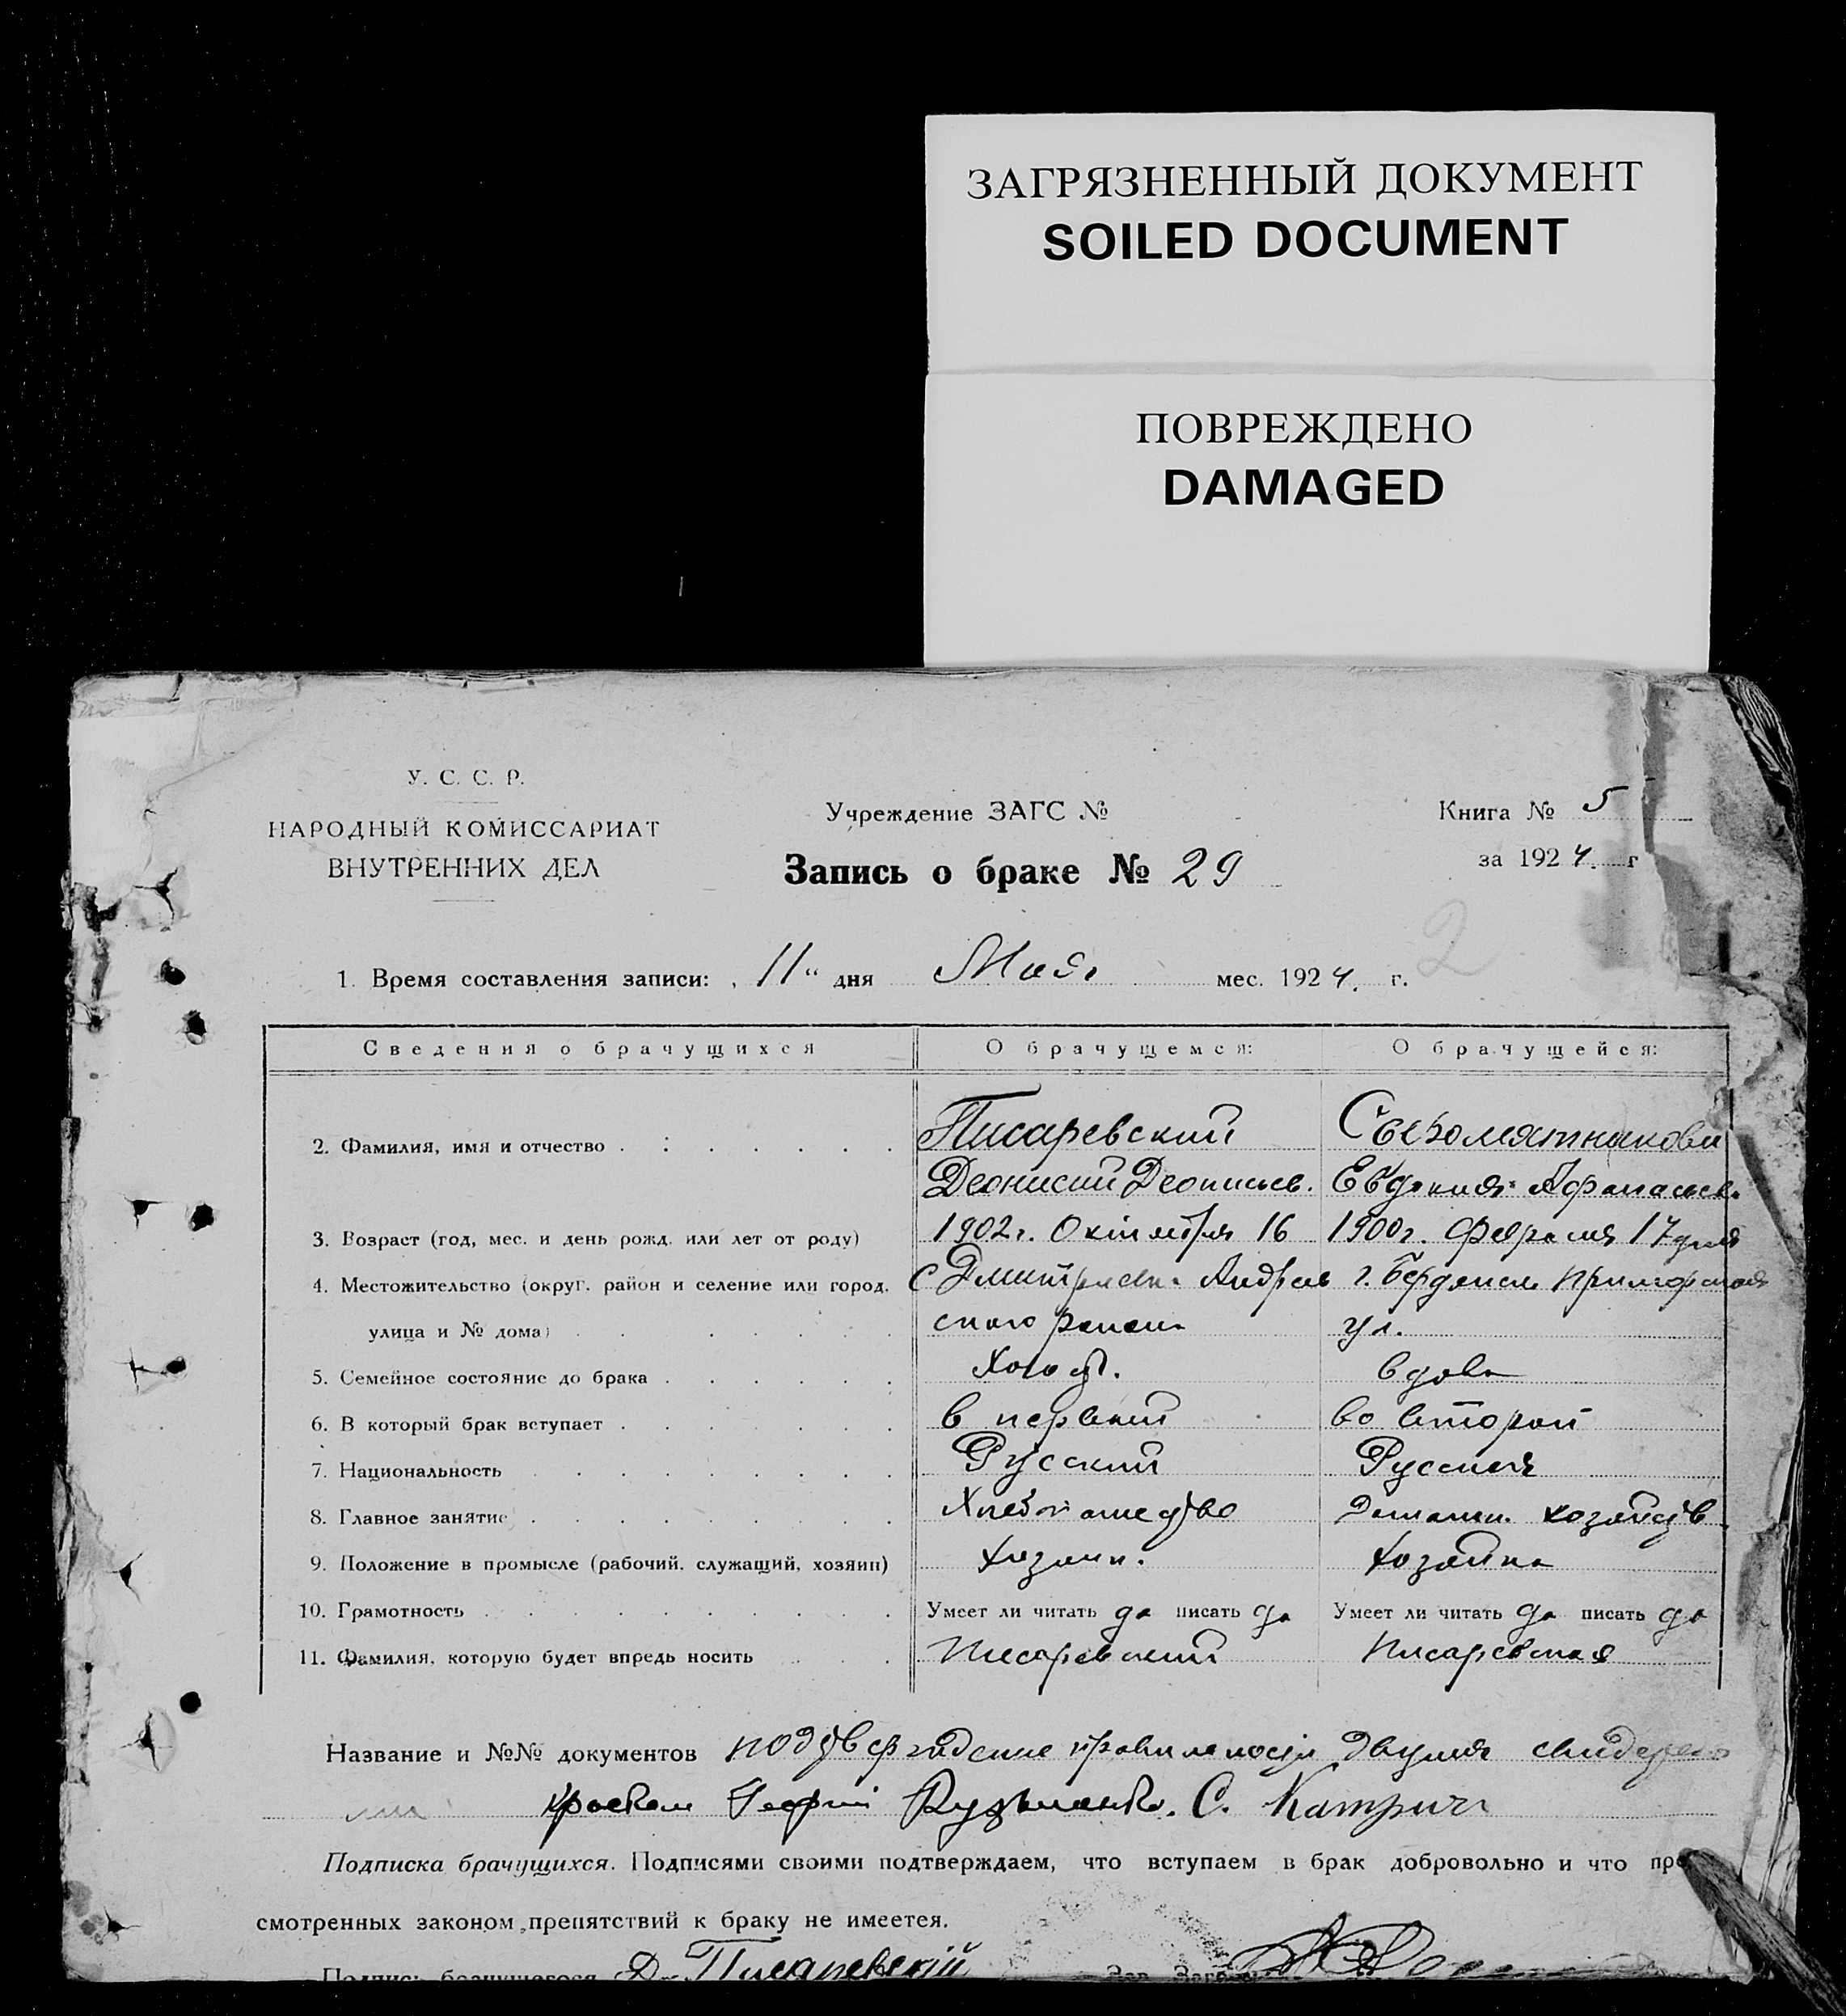 ЗАГРЯЗНЕННЫЙ ДОКУМЕНТ
SOILED DOCUMENT
ПОВРЕЖДЕНО
DAMAGED
У. С. С. Р.
НАРОДНЫЙ КОМИССАРИАТ
ВНУТРЕННИХ ДЕЛ
Учреждение ЗАГС №
Запись о браке № 29
Книга № 5
за 1924. г
2
1. Время составления записи: „ 11 “ дня Мая мес. 1924. г.
Сведения о брачущихся О брачущемся: О брачущейся:
2. Фамилия, имя и отчество Писаревский Сыромятникова
Деонисий Деонисьев. Евдокия Афанасьев.
3. Возраст (год, мес. и день рожд. или лет от роду) 1902г. Октября 16 1900г. Февраля 17 дня
4. Местожительство (округ, район и селение или город, С Дмитриевка Андреев г. Бердянск Приморская
улица и № дома) ского района ул.
5. Семейное состояние до брака Холост. вдова
6. В который брак вступает в первый во второй
7. Национальность Русский Русская
8. Главное занятие Хлебопашество Домашн. хозяйств
9. Положение в промысле (рабочий, служащий, хозяин) Хозяин. Хозяйка
10. Грамотность Умеет ли читать да писать да Умеет ли читать да писать да
11. Фамилия, которую будет впредь носить Писаревский Писаревская
Название и №№ документов подтверждение двумя
Георгий Кузьменко. С. Катрич
Подписка брачущихся. Подписями своими подтверждаем, что вступаем в брак добровольно и что пре
смотренных законом препятствий к браку не имеется.
Подпись брачущегося Д. Писаревскій Зав. Загс